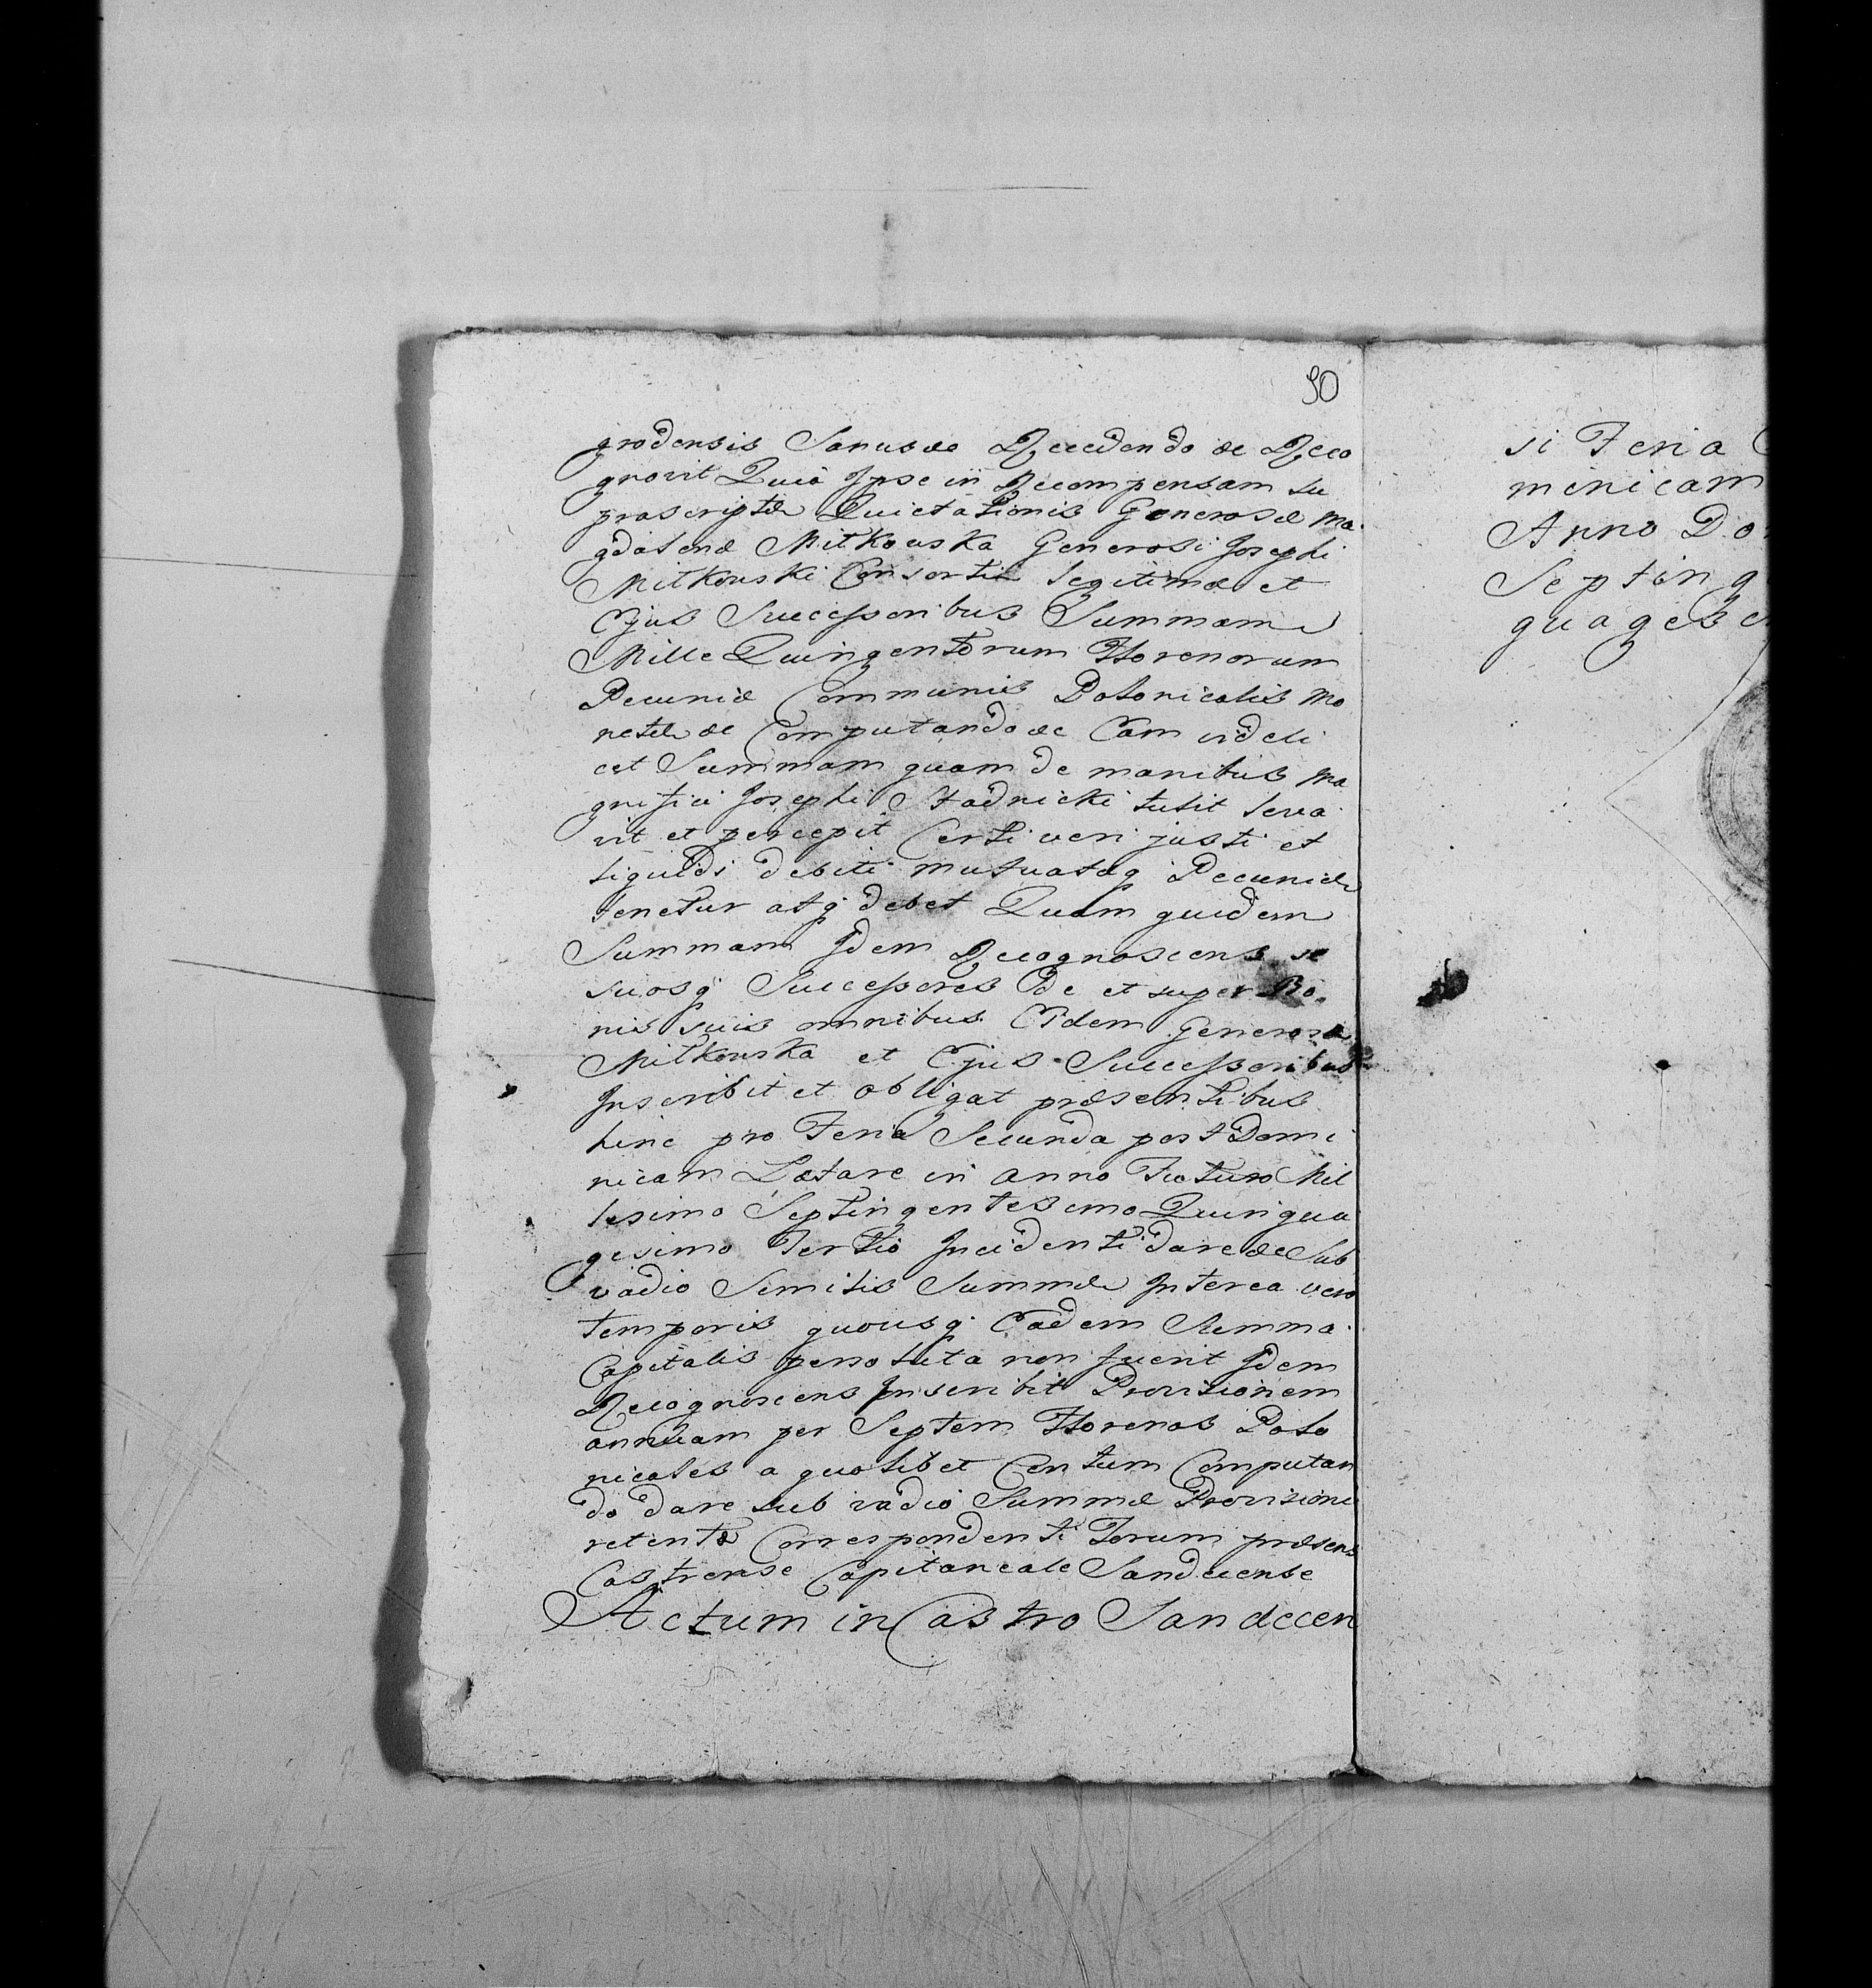 50
grodensis Sanus &c Recedendo &c Reco
gnovit Quia Ipse in Recompensam su
prascriptæ Quietationis Generosæ Ma
gdalenæ Mitkouska Generosi Josephi
Mitkouski Consortis legitimæ et
Ejus Successoribus Summam
Mille Quingentorum Florenorum
Pecuniæ Communis Polonicalis Mo
netæ &c Computando &c Eam videli
cet Summam quam de manibus Ma
gnifici Josephi Stadnicki tulit leva
vit et percepit Certi veri justi et
liquidi debiti mutuatæq Pecuniæ
tenetur atq debet Quam quidem
Summam Idem Recognoscens se
suosq Successores De et super Bo
nis suis omnibus Eidem Generosæ
Mitkouska et Ejus Successoribus
Inscribit et obligat præsentibus
hinc pro Feria Secunda post Domi
nicam Lætare in anno Futuro Mil
lesimo Septingentesimo Quinqua
gesimo Tertio Incidenti dare &c Sub
vadio Similis Summæ Interea vero
temporis quousq Eadem Summa
Capitalis persoluta non fuerit Idem
Recognoscens Inscribit Provisionem
annuam per Septem Florenos Polo
nicales a quolibet Centum Computan
do dare sub vadio Summæ Provisioni
retentæ Correspondenti Forum præsens
Castrense Capitaneale Sandecense
Actum in Castro Sandecen
si Feria
minicam
Anno Do
Septing
quagesi